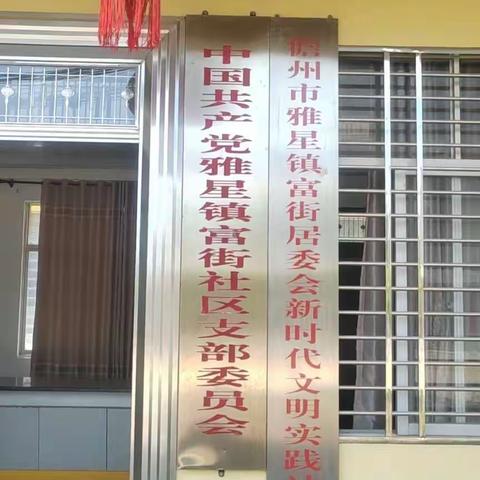 中国共产党雅星镇富街社区支部委员会
儋州市雅星镇富街居委会新时代文明实践